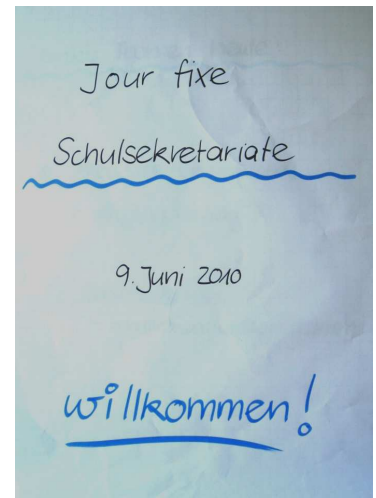 Jour fixe
Schulsekretariate
9. Juni 2010
willkommen!